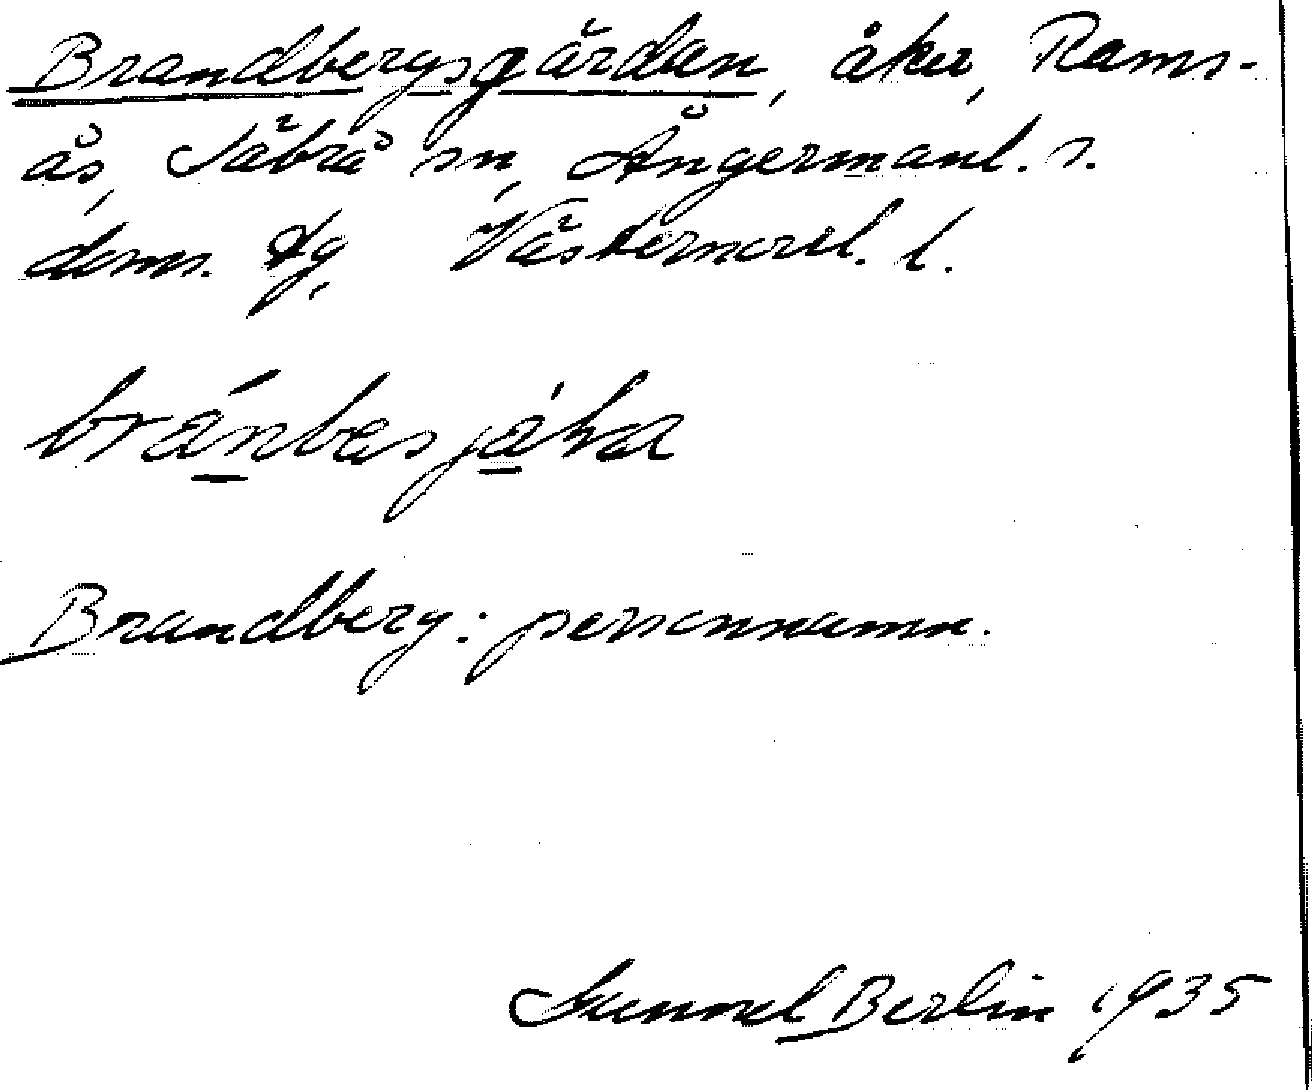 Brandbergsgårdan, åker, Rams-
ås, Säbrå sn, Ångermanl. s.
doms. tg, Västernorrl. l.
bránbasjáka
Brandberg: personnamn.
Gunnel Berlin 1935